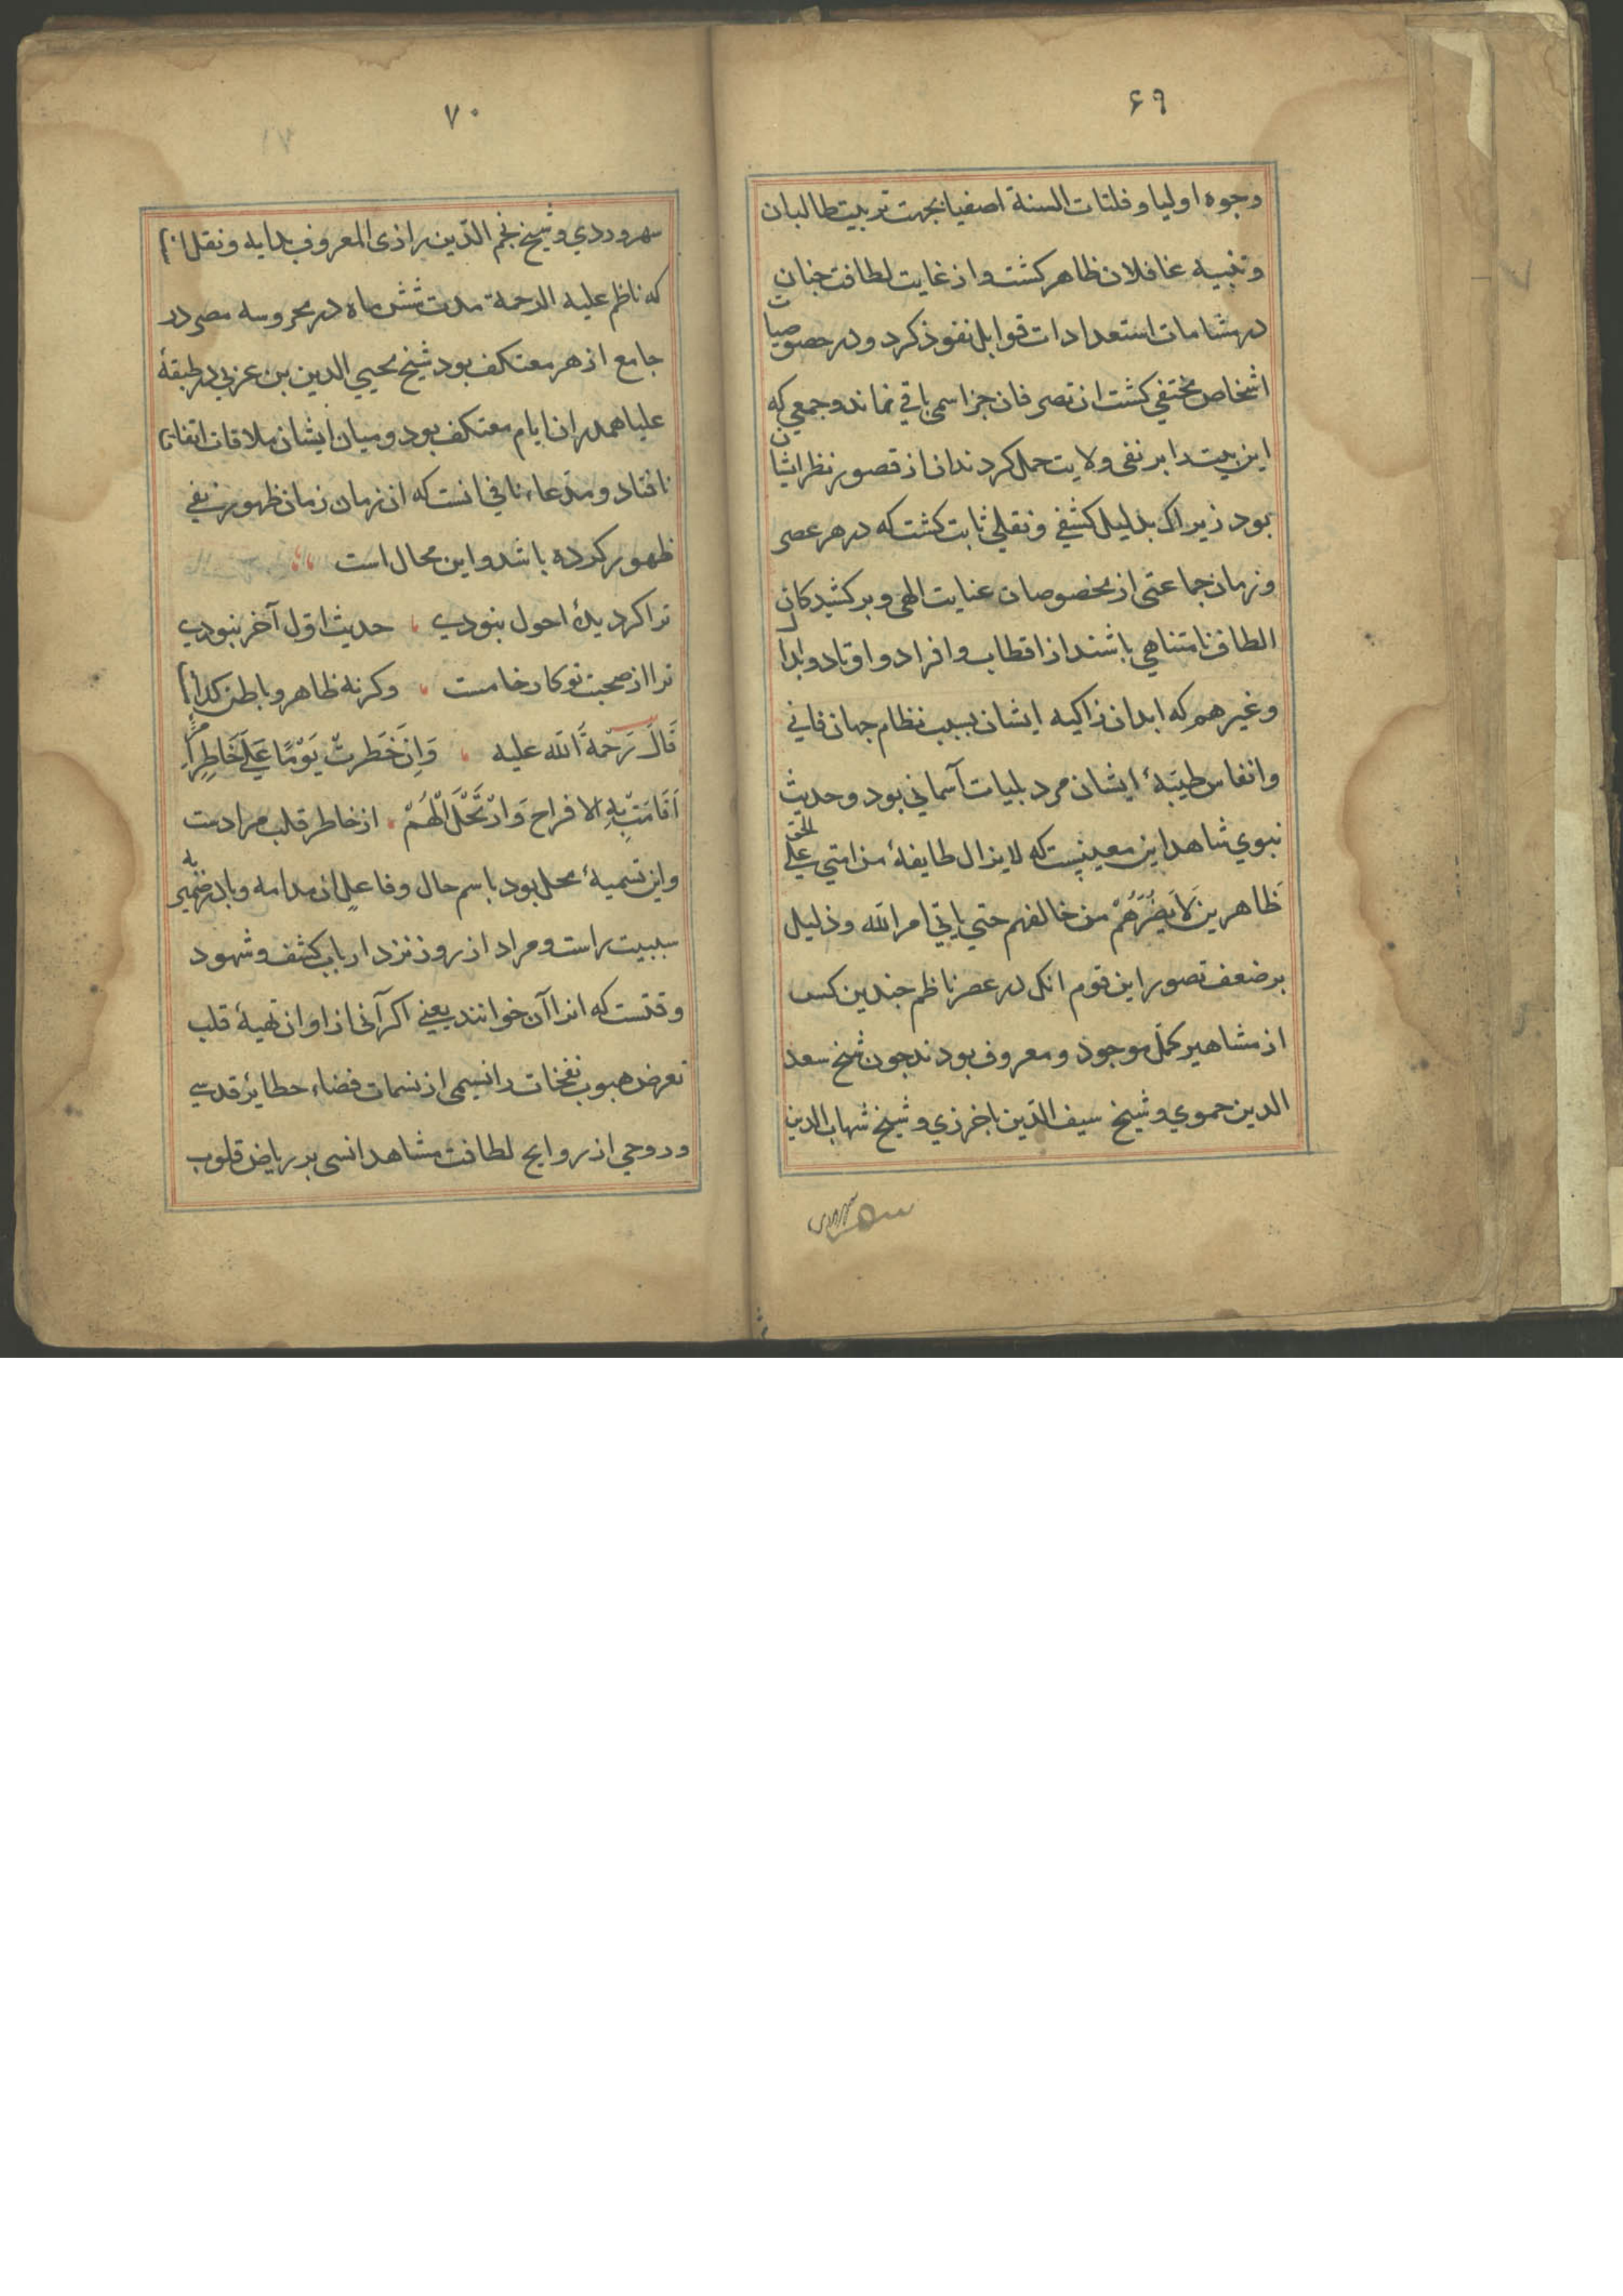 ۶۹
وجوه اولیا و فلتات السنة اصفیا بجهت تربیت طالبان
و تنبیه غافلان ظاهر کشت و از غایت لطافت جنان
در مشامات استعدادات قوابل نفوذ کرد و در خصوصیات
اشخاص مختفی کشت ان تصرفان جز اسمی باقی نماند و جمعی که
این بیت را بر نفی ولایت حمل کردند ان از قصور نظر ایشان
بود زیرا که بدلیل کشفی و نقلی ثابت کشت که در هر عصر
و زمان جماعتی از مخصوصان عنایت الهی و برکشیدکان
الطاف نامتناهی باشند از اقطاب و افراد و اوتاد و ابدال
و غیرهم که ابدان زاکیه ایشان سبب نظام جهان فانی
و انفاس طیبهٔ ایشان مرد بلیات آسمانی بود و حدیث
نبوی شاهد این معنیست که لا یزال طایفهٔ من امتی علی الحق
ظاهرین لَا یَضُرُّهُمْ من خالفهم حتی یاتی امر الله و دلیل
بر ضعف تصور این قوم انکه در عصر ناظم جندین کس
از مشاهیر کمّل موجود و معروف بودند جون شیخ سعد
الدین حموی و شیخ سیف الدّین باخرزی و شیخ شهاب الدین
سهروردی
۷۰
سهروردی و شیخ نجم الدّین رازی المعروف بدایه و نقل است
که ناظم علیه الرحمة مدت شش ماه در محروسه مصر در
جامع ازهر معتکف بود شیخ محیی الدین بن عربی در طبقهٔ
علیا هم در ان ایام معتکف بود و میان ایشان ملاقات اتفاق
نافتاد و مدعاء نافی انست که ان زمان زمان ظهور نفی
ظهور کرده باشد و این محال است
ترا کر دیدهٔ احول نبودی حدیث اول آخر نبودی
ترا از صحبت تو کار خامست وکرنه ظاهر و باطن کدام است
قَالَ رَحْمَةُ الله علیه وَاِنْ خَطَرتْ یَوْمًا عَلَی خَاطِرِ امْرِءٍ
اَقَامَتْ بِهِ الافراح وَارْتَحَلَ الْهَمُّ از خاطر قلب مرادست
و این تسمیهٔ محل بود باسم حال و فاعل ان مدامه و با در ضمیر به
سببیت راست و مراد از روز نزد ارباب کشف و شهود
وقتست که انرا آن خوانند یعنی اکر آنی از اوان تهیهٔ قلب
تعرض هبوب نفحات را نسیمی از نسمات فضاء حظایر قدسی
و روحی از روایح لطافت مشاهد انسی بر ریاض قلوب